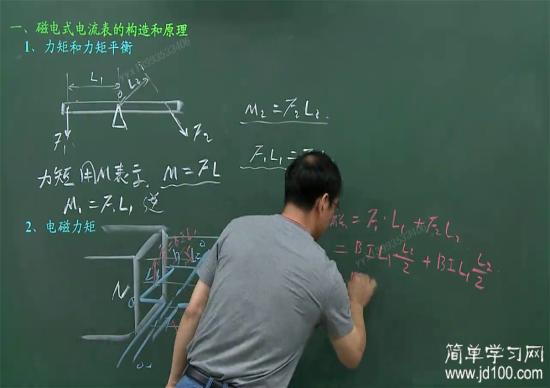 一、磁电式电流表的构造和原理
1、力矩和力矩平衡
L₁
L₂
O
F₁
F₂
M₂=F₂L₂.
F₁L₁=
力矩 用M表示. M=FL
M₁=F₁L₁ 逆
2、电磁力矩
N
=F₁·L₁+F₂L₂
=BIL₁L₂/2+BIL₁L₂/2
简单学习网
www.jd100.com